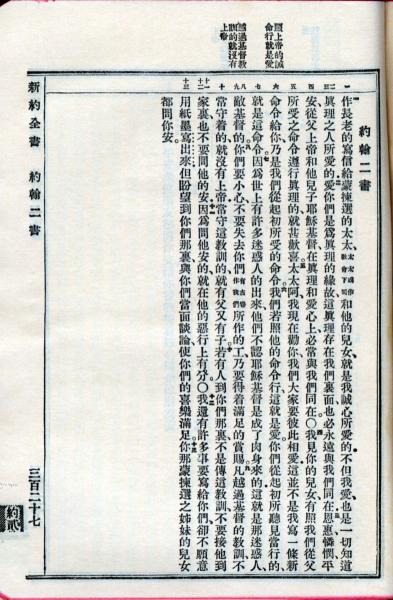 遵上帝的誡
命行就是愛
越過基督教
訓的就沒有
上帝
約翰二書
一 作長老的寫信給蒙揀選的太太、太太或作教會下同和他的兒女、就是我誠心所愛的不但我愛、也是一切知道
二 三 眞理之人所愛的愛你們是爲眞理的緣故這眞理存在我們裏面也必永遠與我們同在恩惠憐憫平
四 安從父上帝和他兒子耶穌基督在眞理和愛心上必常與我們同在〇我見你的兒女有照我們從父
五 所受之命令遵行眞理的就甚歡喜太太阿我現在勸你我們大家要彼此相愛這並不是我寫一條新
六 命令給你、乃是我們從起初所受的命令我們若照他的命令行這就是愛你們從起初所聽見當行的、
七 就是這命令因爲世上有許多迷惑人的出來他們不認耶穌基督是成了肉身來的這就是那迷惑人、
八 九 敵基督的你們要小心不要失去你們有古卷作我們所作的工乃要得着滿足的賞賜凡越過基督的教訓不
十 常守着的就沒有上帝常守這教訓的就有父又有子若有人到你們那裏不是傳這教訓不要接他到
十一 十二 家裏也不要問他的安因爲問他安的就在他的惡行上有分〇我還有許多事要寫給你們卻不願意
十三 用紙墨寫出來但盼望到你們那裏與你們當面談論使你們的喜樂滿足你那蒙揀選之姊妹的兒女
都問你安。
新約全書 約翰二書 三百二十七
約貳